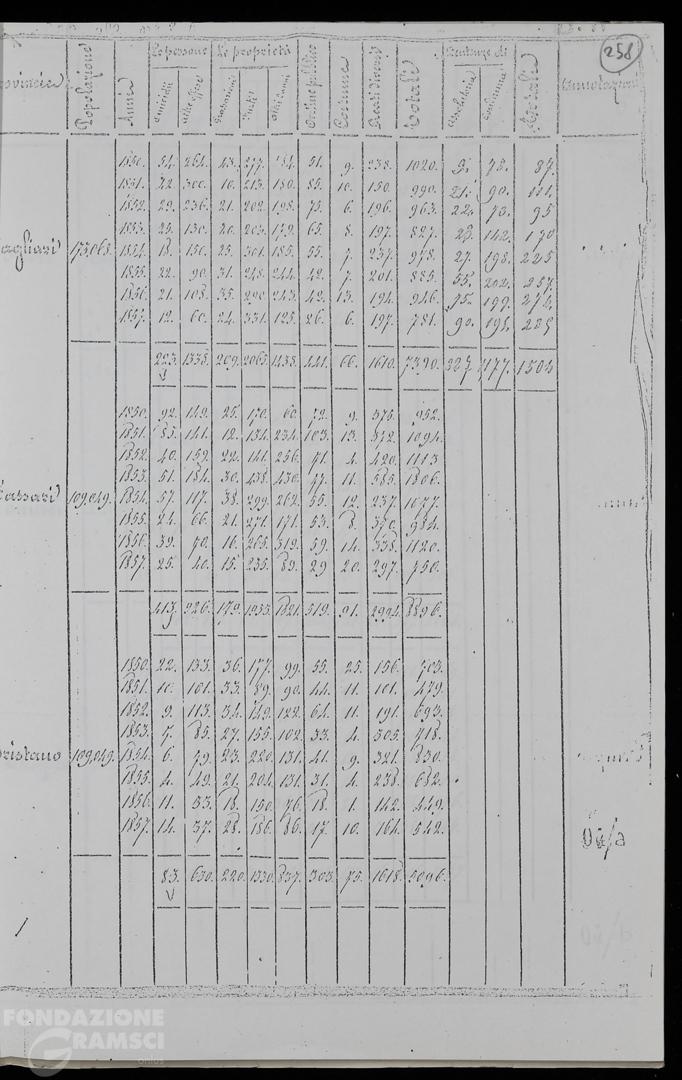 258
Provincie Popolazione Anni Le persone Le proprietà Ordine pubblico Costume Reati diversi Totali Sentenze di Totali Annotazioni
omicidii altre offese Grassazioni Furti altri danni Assolutoria Condanna
1850. 54. 264. 43. 277. 184. 51. 9. 238. 1020. 9. 78. 87.
1851. 22. 300. 10. 213. 180. 85. 10. 150. 990. 21. 90. 111.
1852. 29. 236. 21. 202. 198. 75. 6. 196. 963. 22. 73. 95
1853. 25. 130. 20. 203. 179. 65. 8. 197. 827. 28. 142. 170
Cagliari 173,063. 1854. 18. 150. 25. 301. 185. 55. 7. 237. 978. 27. 198. 225
1855. 22. 90. 31. 248. 244. 42. 7. 201. 885. 55. 202. 257.
1856. 21. 108. 35. 290. 243. 42. 13. 194. 946. 75. 199. 274.
1857. 12. 60. 24. 331. 125. 26. 6. 197. 781. 90. 195. 285
223. 1338. 209. 2065. 1438. 441. 66. 1610. 7390. 327. 1177. 1504
1850. 92. 149. 25. 170. 60. 72. 9. 375. 952.
1851. 85. 141. 12. 134. 234. 103. 13. 372. 1094.
1852. 40. 159. 22. 141. 256. 71. 4. 420. 1113
1853. 51. 184. 30. 438. 430. 77. 11. 585. 1806.
Sassari 109,049. 1854. 57. 117. 38. 299. 262. 55. 12. 237. 1077.
1855. 24. 66. 21. 271. 171. 53. 8. 370. 984.
1856. 39. 70. 16. 265. 319. 59. 14. 338. 1120.
1857. 25. 40. 15. 235. 89. 29 20. 297. 750.
413. 926. 179. 1953. 1821. 519. 91. 2994. 8896.
1850. 22. 133. 36. 177. 99. 55. 25. 156. 703.
1851. 10. 101. 33. 89. 90. 44. 11. 101. 479.
1852. 9. 113. 34. 149. 122. 64. 11. 191. 693.
1853. 7. 85. 27. 155. 102. 33. 4. 305. 718.
Oristano 109,049. 1854. 6. 79. 23. 220. 131. 41. 9. 321. 830.
1855. 4. 49. 21. 204. 131. 31. 4. 238. 682.
1856. 11. 33. 18. 150. 76. 18. 1. 142. 449.
1857. 14. 37. 28. 186. 86. 17. 10. 164. 542.
83. 630. 220. 1330. 837. 303. 75. 1618. 5096.
FONDAZIONE
GRAMSCI
Onlus